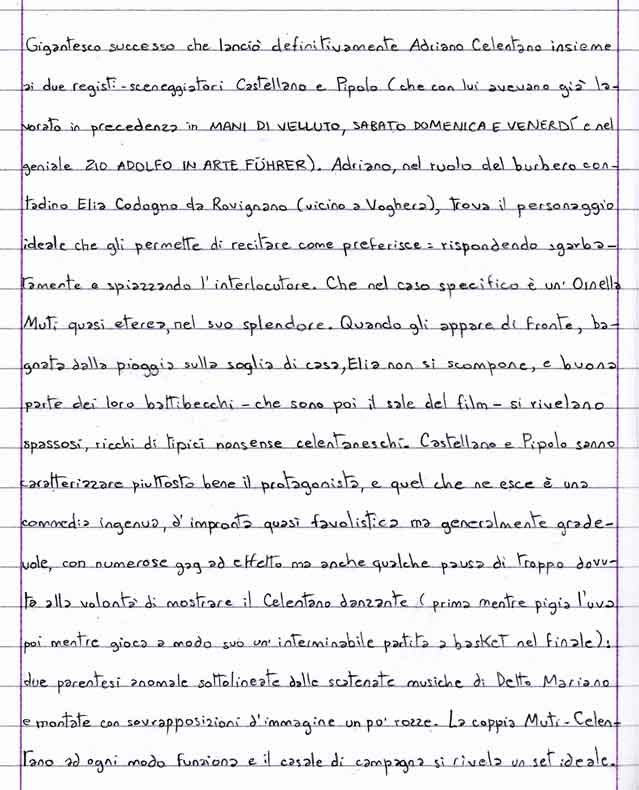 Gigantesco successo che lanciò definitivamente Adriano Celentano insieme
ai due registi-sceneggiatori Castellano e Pipolo (che con lui avevano già la-
vorato in precedenza in MANI DI VELLUTO, SABATO DOMENICA E VENERDÍ e nel
geniale ZIO ADOLFO IN ARTE FÜHRER). Adriano, nel ruolo del burbero con-
tadino Elia Codogno da Rovignano (vicino a Voghera), trova il personaggio
ideale che gli permette di recitare come preferisce: rispondendo sgarba-
tamente e spiazzando l'interlocutore. Che nel caso specifico è un'Ornella
Muti quasi eterea, nel suo splendore. Quando gli appare di fronte, ba-
gnata dalla pioggia sulla soglia di casa, Elia non si scompone, e buona
parte dei loro battibecchi - che sono poi il sale del film - si rivelano
spassosi, ricchi di tipici nonsense celentaneschi. Castellano e Pipolo sanno
caratterizzare piuttosto bene il protagonista, e quel che ne esce è una
commedia ingenua, d'impronta quasi favolistica ma generalmente grade-
vole, con numerose gag ad effetto ma anche qualche pausa di troppo dovu-
ta alla volontà di mostrare il Celentano danzante (prima mentre pigia l'uva
poi mentre gioca a modo suo un'interminabile partita a basket nel finale):
due parentesi anomale sottolineate dalle scatenate musiche di Detto Mariano
e montate con sovrapposizioni d'immagine un po' rozze. La coppia Muti-Celen-
tano ad ogni modo funziona e il casale di campagna si rivela un set ideale.